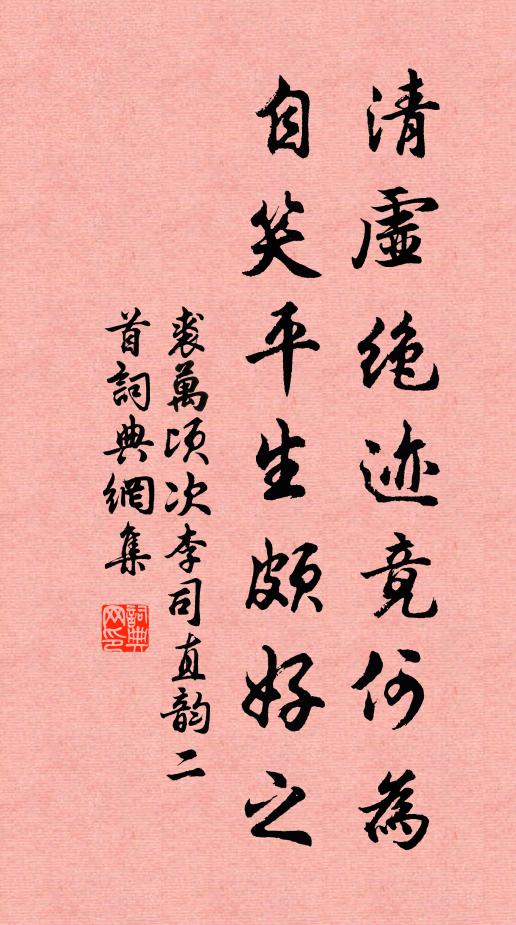 清虛絶迹竟何為
自笑平生頗好之
裘萬頃次李司直韵二
首詞典網集
詞典網印